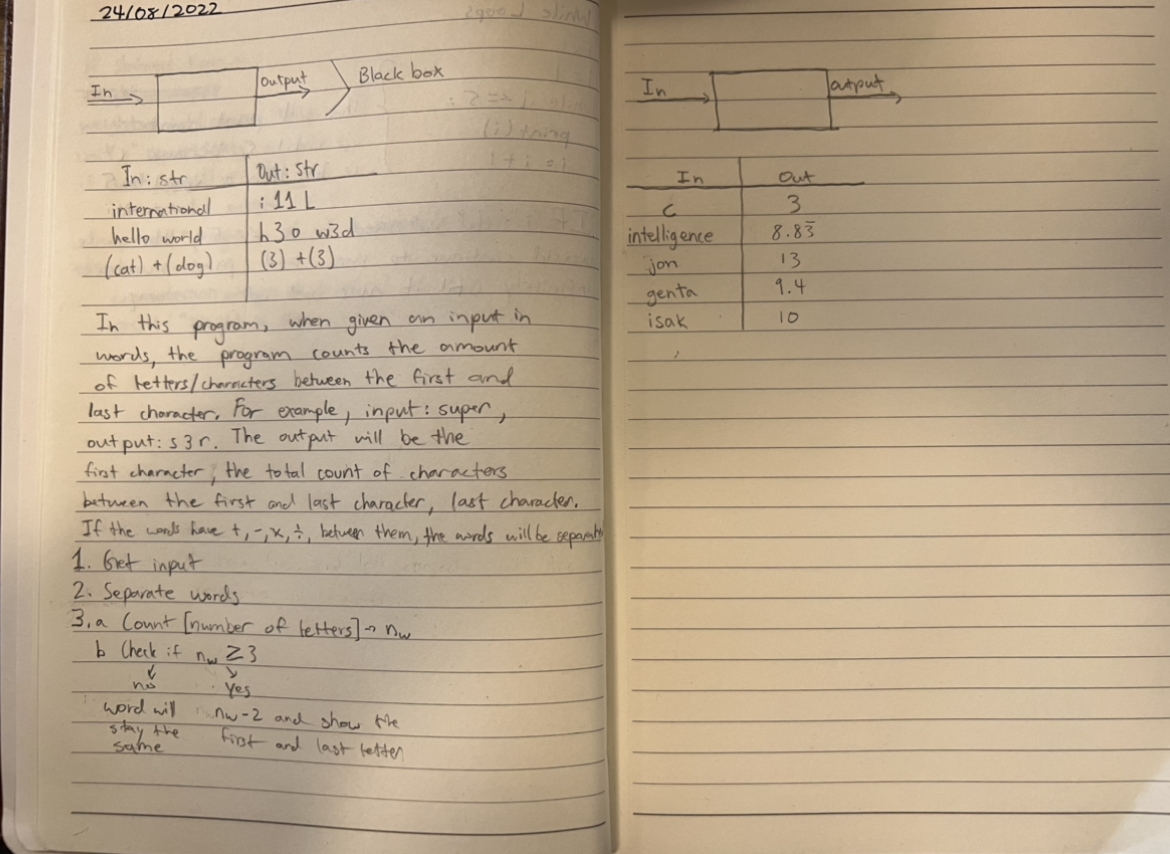 24/08/2022
In
Output
Black box
In : str
Out : str
international
i 11 L
hello world
h3o w3d
(cat) + (dog)
(3) + (3)
In this program, when given an input in
words, the program counts the amount
of letters/characters between the first and
last character. For example, input : super,
output : s3r. The output will be the
first character, the total count of characters
between the first and last character, last character.
If the words have +, -, x, ÷, between them, the words will be
1. Get input
2. Separate words
3. a Count [number of letters] → nw
b Check if nw ≥ 3
no
yes
word will
stay the
same
nw-2 and show the
first and last letter
In
output
In
Out
c
3
intelligence
8.83̄
jon
13
genta
9.4
isak
10